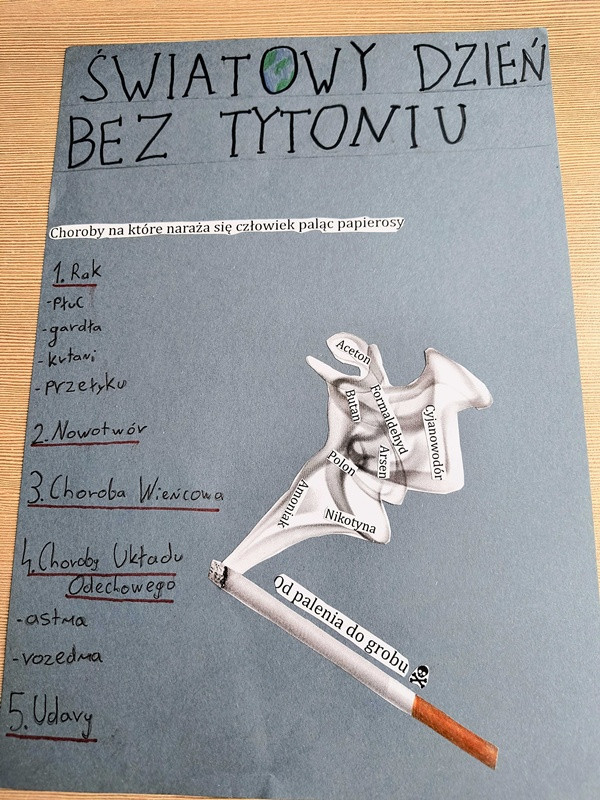 ŚWIATOWY DZIEŃ
BEZ TYTONIU
Choroby na które naraża się człowiek paląc papierosy
1. Rak
-płuc
-gardła
-krtani
-przełyku
2. Nowotwór
3. Choroba Wieńcowa
4. Choroby Układu
Odechowego
-astma
-rozedma
5. Udary
Aceton
Butan
Formaldehyd
Cyjanowodór
Arsen
Polon
Amoniak
Nikotyna
Od palenia do grobu